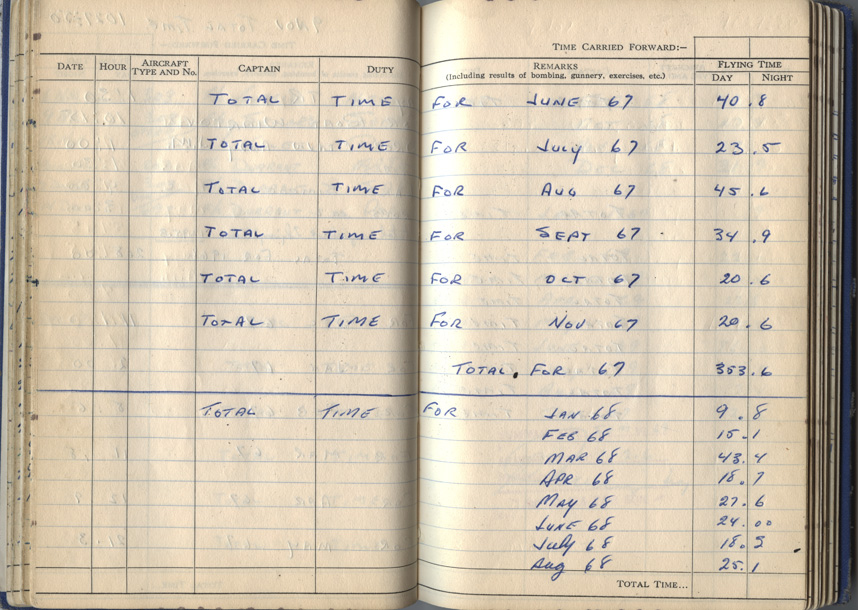 TIME CARRIED FORWARD:—
DATE HOUR AIRCRAFT TYPE AND No. CAPTAIN DUTY REMARKS (Including results of bombing, gunnery, exercises, etc.) FLYING TIME DAY NIGHT
TOTAL TIME FOR JUNE 67 40.8
TOTAL TIME FOR JULY 67 23.5
TOTAL TIME FOR AUG 67 45.6
TOTAL TIME FOR SEPT 67 34.9
TOTAL TIME FOR OCT 67 20.6
TOTAL TIME FOR NOV 67 20.6
TOTAL. FOR 67 353.6
TOTAL TIME FOR JAN 68 9.8
FEB 68 15.1
MAR 68 43.4
APR 68 18.7
MAY 68 27.6
JUNE 68 24.00
July 68 18.5
Aug 68 25.1
TOTAL TIME...